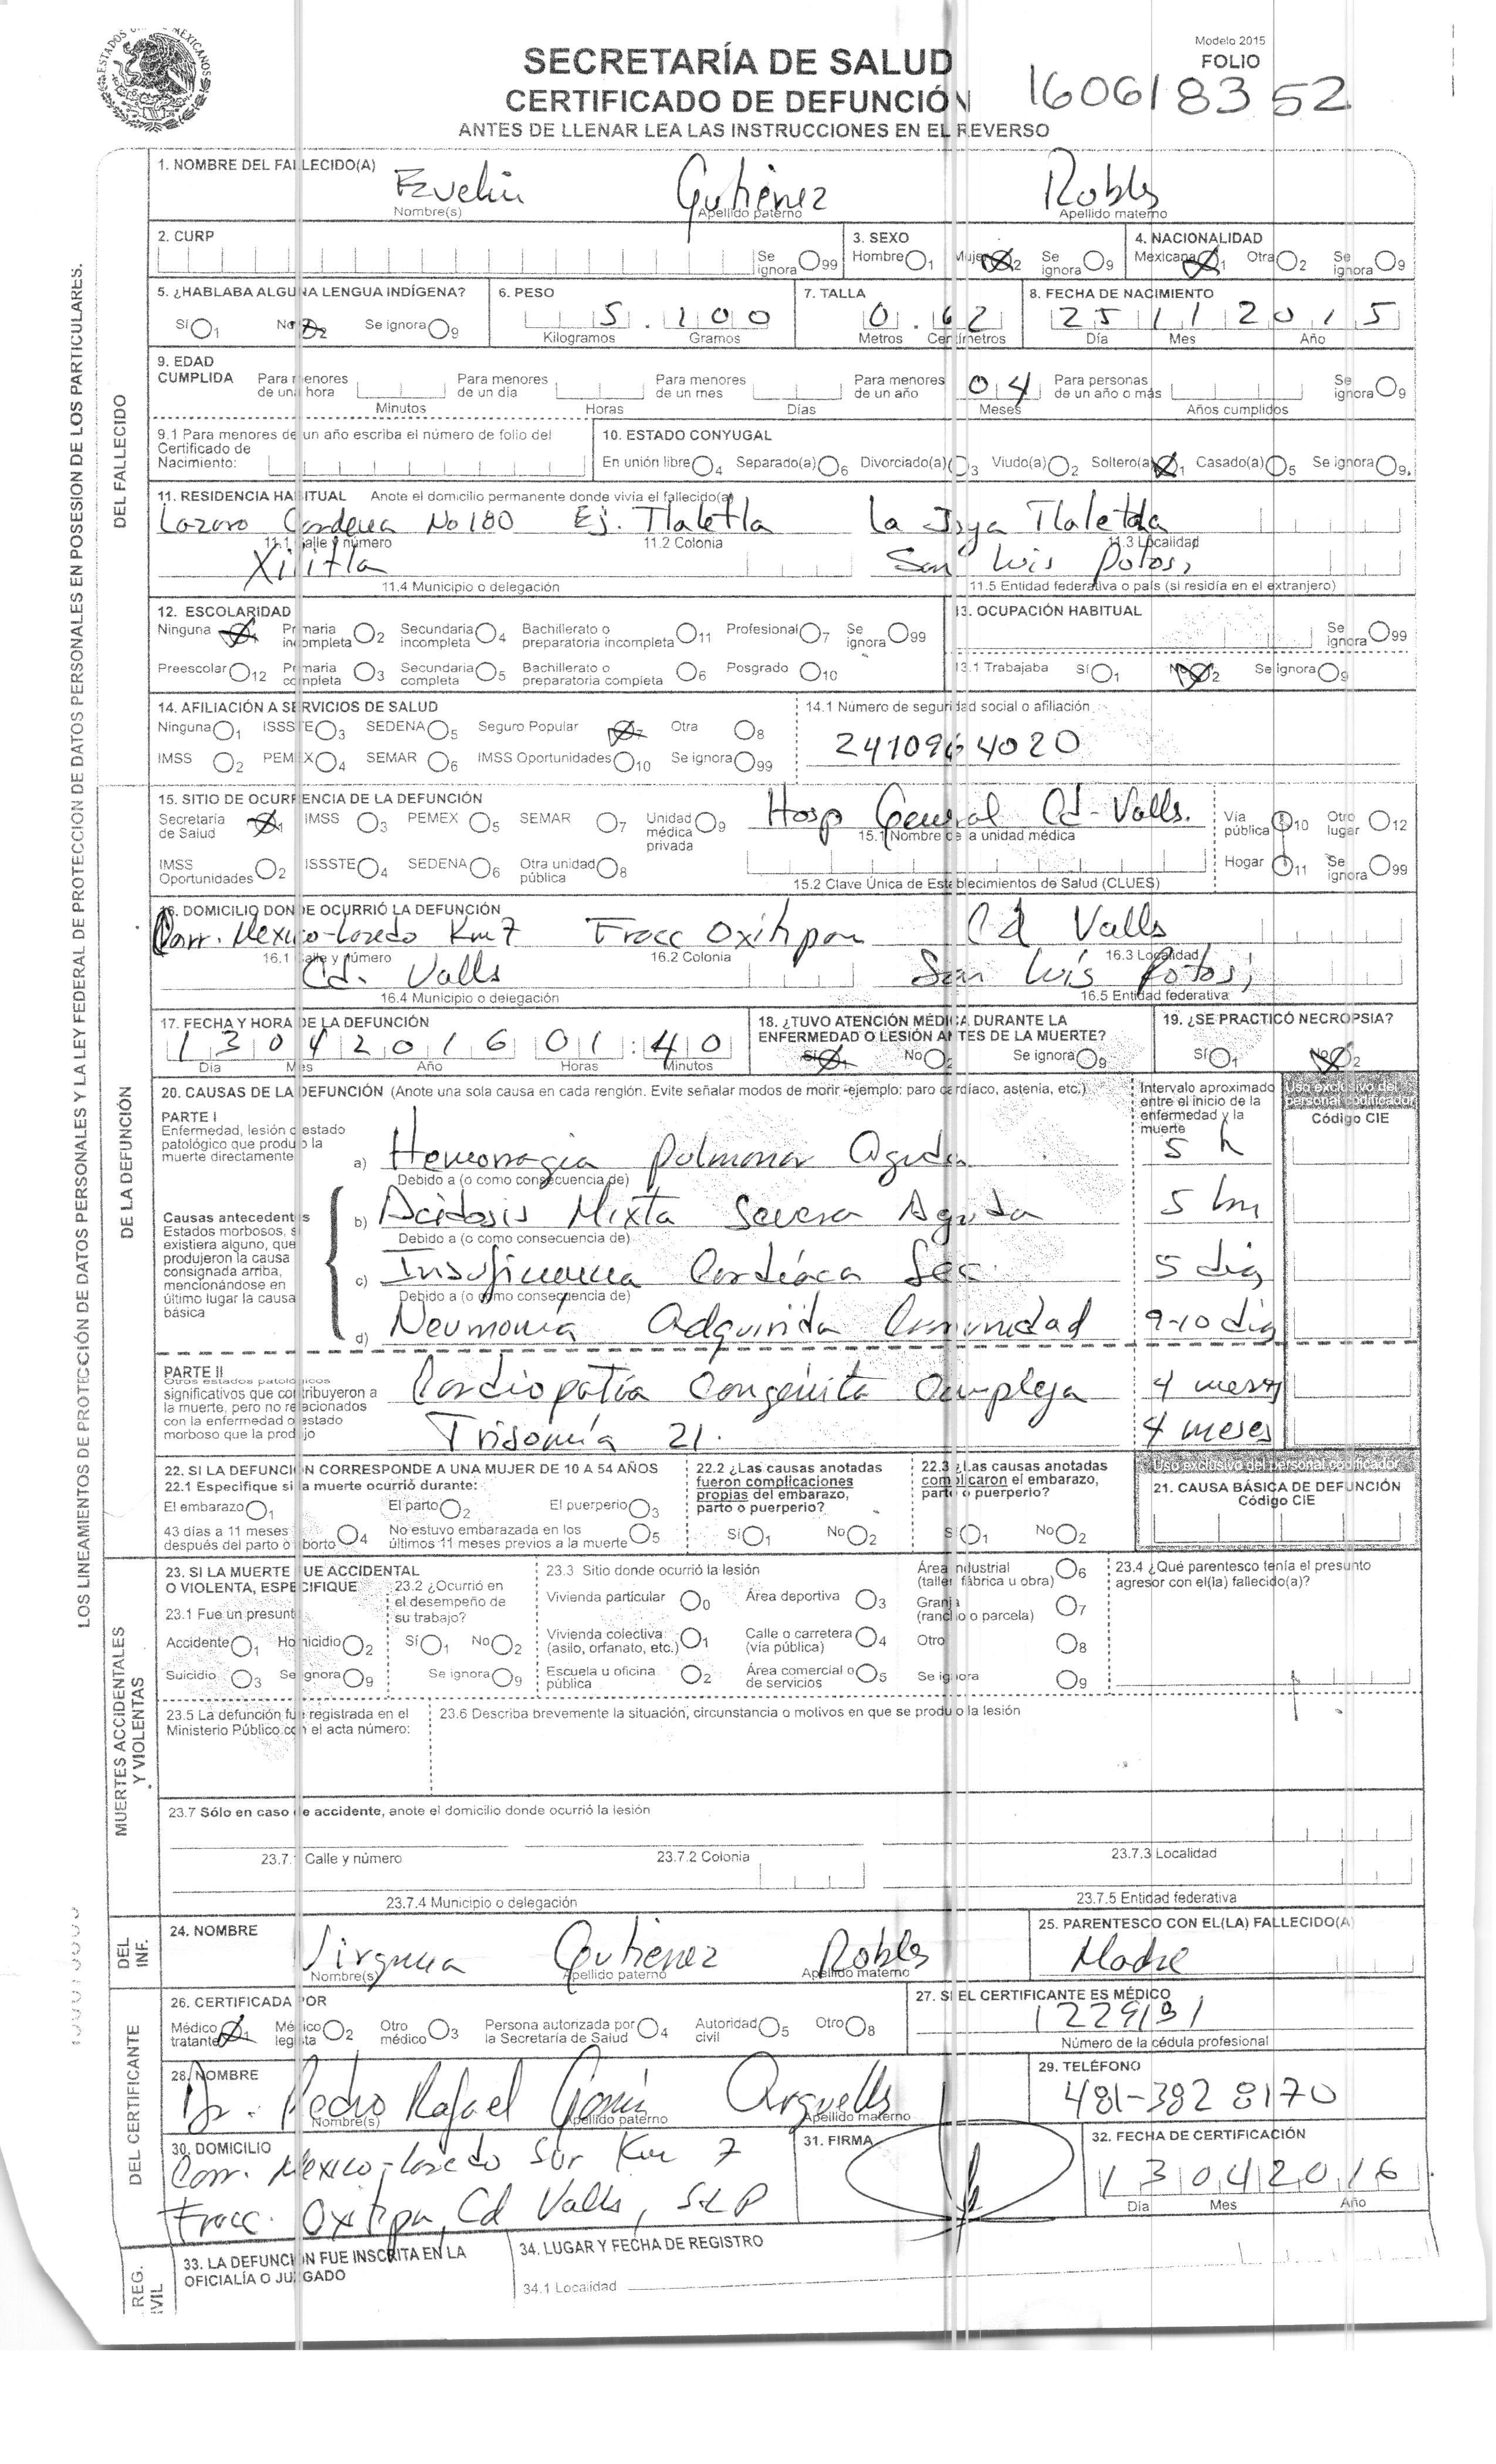 ESTADOS UNIDOS MEXICANOS
Modelo 2015
SECRETARÍA DE SALUD
FOLIO
CERTIFICADO DE DEFUNCIÓN
160618352
ANTES DE LLENAR LEA LAS INSTRUCCIONES EN EL REVERSO
LOS LINEAMIENTOS DE PROTECCIÓN DE DATOS PERSONALES Y LA LEY FEDERAL DE PROTECCION DE DATOS PERSONALES EN POSESION DE LOS PARTICULARES.
DEL FALLECIDO
1. NOMBRE DEL FALLECIDO(A)
Evelin Gutiérrez Robles
Nombre(s) Apellido paterno Apellido materno
2. CURP
Se ignora 99
3. SEXO
Hombre 1 Mujer 2 Se ignora 9
4. NACIONALIDAD
Mexicana 1 Otra 2 Se ignora 9
5. ¿HABLABA ALGUNA LENGUA INDÍGENA?
Sí 1 No 2 Se ignora 9
6. PESO
5.100
Kilogramos Gramos
7. TALLA
0.62
Metros Centímetros
8. FECHA DE NACIMIENTO
25 11 2015
Día Mes Año
9. EDAD CUMPLIDA
Para menores de una hora
Minutos
Para menores de un día
Horas
Para menores de un mes
Días
Para menores de un año 04
Meses
Para personas de un año o más
Años cumplidos
Se ignora 9
9.1 Para menores de un año escriba el número de folio del Certificado de Nacimiento:
10. ESTADO CONYUGAL
En unión libre 4 Separado(a) 6 Divorciado(a) 3 Viudo(a) 2 Soltero(a) 1 Casado(a) 5 Se ignora 9.
11. RESIDENCIA HABITUAL Anote el domicilio permanente donde vivía el fallecido(a)
Lazaro Cardena No 180 Ej. Tlaletla La Joya Tlaletla
11.1 Calle y número 11.2 Colonia 11.3 Localidad
Xilitla San Luis Potosi
11.4 Municipio o delegación 11.5 Entidad federativa o país (si residía en el extranjero)
12. ESCOLARIDAD
Ninguna 1 Primaria incompleta 2 Secundaria incompleta 4 Bachillerato o preparatoria incompleta 11 Profesional 7 Se ignora 99
Preescolar 12 Primaria completa 3 Secundaria completa 5 Bachillerato o preparatoria completa 6 Posgrado 10
13. OCUPACIÓN HABITUAL
Se ignora 99
13.1 Trabajaba Sí 1 No 2 Se ignora 9
14. AFILIACIÓN A SERVICIOS DE SALUD
Ninguna 1 ISSSTE 3 SEDENA 5 Seguro Popular 7 Otra 8
IMSS 2 PEMEX 4 SEMAR 6 IMSS Oportunidades 10 Se ignora 99
14.1 Número de seguridad social o afiliación
2410964020
DE LA DEFUNCIÓN
15. SITIO DE OCURRENCIA DE LA DEFUNCIÓN
Secretaría de Salud 1 IMSS 3 PEMEX 5 SEMAR 7 Unidad médica privada 9
IMSS Oportunidades 2 ISSSTE 4 SEDENA 6 Otra unidad pública 8
Hosp General Cd-Valls.
15.1 Nombre de la unidad médica
15.2 Clave Única de Establecimientos de Salud (CLUES)
Vía pública 10 Otro lugar 12
Hogar 11 Se ignora 99
16. DOMICILIO DONDE OCURRIÓ LA DEFUNCIÓN
Carr. Mexico-Laredo Km 7 Fracc Oxitipan Cd Valls
16.1 Calle y número 16.2 Colonia 16.3 Localidad
Cd. Valls San Luis Potosi
16.4 Municipio o delegación 16.5 Entidad federativa
17. FECHA Y HORA DE LA DEFUNCIÓN
13 04 2016 01:40
Día Mes Año Horas Minutos
18. ¿TUVO ATENCIÓN MÉDICA DURANTE LA ENFERMEDAD O LESIÓN ANTES DE LA MUERTE?
Sí 1 No 2 Se ignora 9
19. ¿SE PRACTICÓ NECROPSIA?
Sí 1 No 2
20. CAUSAS DE LA DEFUNCIÓN (Anote una sola causa en cada renglón. Evite señalar modos de morir -ejemplo: paro cardíaco, astenia, etc.)
Intervalo aproximado entre el inicio de la enfermedad y la muerte
Uso exclusivo del personal codificador
Código CIE
PARTE I
Enfermedad, lesión o estado patológico que produjo la muerte directamente
a) Hemorragia Pulmonar Aguda 5 h
Debido a (o como consecuencia de)
Causas antecedentes
Estados morbosos, si existiera alguno, que produjeron la causa consignada arriba, mencionándose en último lugar la causa básica
b) Acidosis Mixta Severa Aguda 5 hrs
Debido a (o como consecuencia de)
c) Insuficiencia Cardíaca Sec. 5 dias
Debido a (o como consecuencia de)
d) Neumonía Adquirida Comunidad 9-10 dias
PARTE II
Otros estados patológicos significativos que contribuyeron a la muerte, pero no relacionados con la enfermedad o estado morboso que la produjo
Cardiopatía Congénita Compleja 4 meses
Trisomía 21. 4 meses
22. SI LA DEFUNCIÓN CORRESPONDE A UNA MUJER DE 10 A 54 AÑOS
22.1 Especifique si la muerte ocurrió durante:
El embarazo 1 El parto 2 El puerperio 3
43 días a 11 meses después del parto o aborto 4 No estuvo embarazada en los últimos 11 meses previos a la muerte 5
22.2 ¿Las causas anotadas fueron complicaciones propias del embarazo, parto o puerperio?
Sí 1 No 2
22.3 ¿Las causas anotadas complicaron el embarazo, parto o puerperio?
Sí 1 No 2
Uso exclusivo del personal codificador
21. CAUSA BÁSICA DE DEFUNCIÓN
Código CIE
MUERTES ACCIDENTALES Y VIOLENTAS
23. SI LA MUERTE FUE ACCIDENTAL O VIOLENTA, ESPECIFIQUE
23.1 Fue un presunto
Accidente 1 Homicidio 2
Suicidio 3 Se ignora 9
23.2 ¿Ocurrió en el desempeño de su trabajo?
Sí 1 No 2
Se ignora 9
23.3 Sitio donde ocurrió la lesión
Vivienda particular 0 Área deportiva 3 Área industrial (taller, fábrica u obra) 6
Vivienda colectiva (asilo, orfanato, etc.) 1 Calle o carretera (vía pública) 4 Granja (rancho o parcela) 7
Escuela u oficina pública 2 Área comercial o de servicios 5 Otro 8
Se ignora 9
23.4 ¿Qué parentesco tenía el presunto agresor con el(la) fallecido(a)?
23.5 La defunción fue registrada en el Ministerio Público con el acta número:
23.6 Describa brevemente la situación, circunstancia o motivos en que se produjo la lesión
23.7 Sólo en caso de accidente, anote el domicilio donde ocurrió la lesión
23.7.1 Calle y número 23.7.2 Colonia 23.7.3 Localidad
23.7.4 Municipio o delegación 23.7.5 Entidad federativa
DEL INF.
24. NOMBRE
Virginia Gutiérrez Robles
Nombre(s) Apellido paterno Apellido materno
25. PARENTESCO CON EL(LA) FALLECIDO(A)
Madre
DEL CERTIFICANTE
26. CERTIFICADA POR
Médico tratante 1 Médico legista 2 Otro médico 3 Persona autorizada por la Secretaría de Salud 4 Autoridad civil 5 Otro 8
27. SI EL CERTIFICANTE ES MÉDICO
1229191
Número de la cédula profesional
28. NOMBRE
Dr. Pedro Rafael Arguells
Nombre(s) Apellido paterno Apellido materno
29. TELÉFONO
481-382 8170
30. DOMICILIO
Carr. Mexico-Laredo Sur Km 7
Fracc. Oxitipa, Cd Valls, SLP
31. FIRMA
32. FECHA DE CERTIFICACIÓN
13 04 2016
Día Mes Año
REG. CIVIL
33. LA DEFUNCIÓN FUE INSCRITA EN LA OFICIALÍA O JUZGADO
34. LUGAR Y FECHA DE REGISTRO
34.1 Localidad